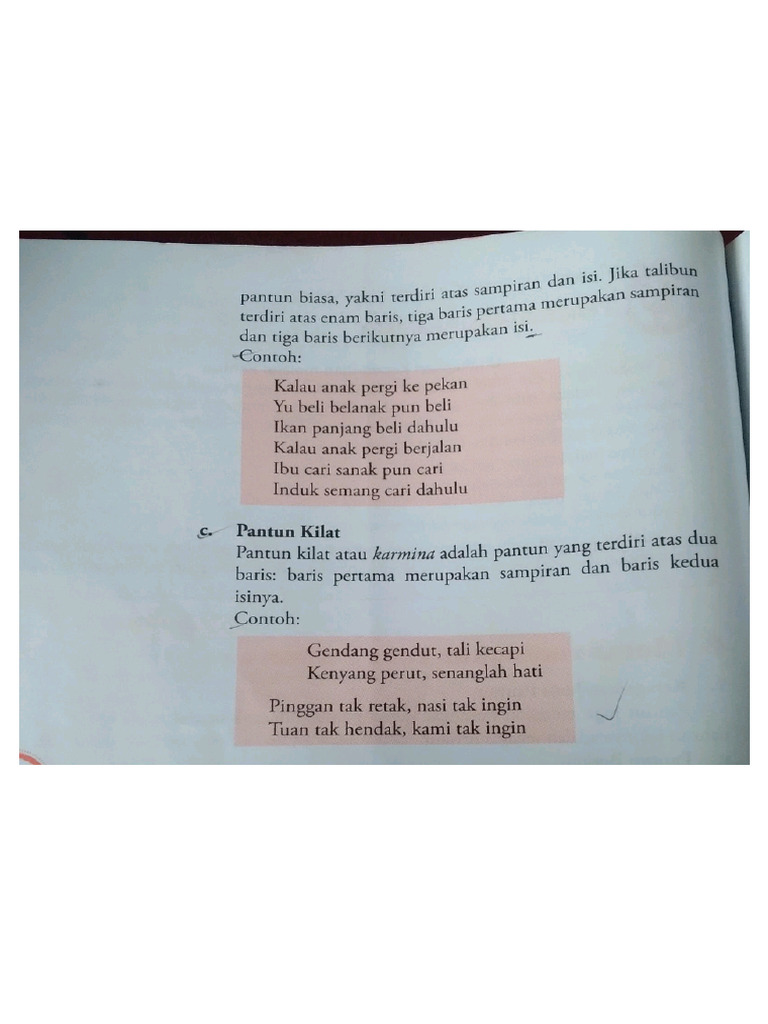 pantun biasa, yakni terdiri atas sampiran dan isi. Jika talibun
terdiri atas enam baris, tiga baris pertama merupakan sampiran
dan tiga baris berikutnya merupakan isi.
Contoh:
Kalau anak pergi ke pekan
Yu beli belanak pun beli
Ikan panjang beli dahulu
Kalau anak pergi berjalan
Ibu cari sanak pun cari
Induk semang cari dahulu
c. Pantun Kilat
Pantun kilat atau karmina adalah pantun yang terdiri atas dua
baris: baris pertama merupakan sampiran dan baris kedua
isinya.
Contoh:
Gendang gendut, tali kecapi
Kenyang perut, senanglah hati
Pinggan tak retak, nasi tak ingin
Tuan tak hendak, kami tak ingin